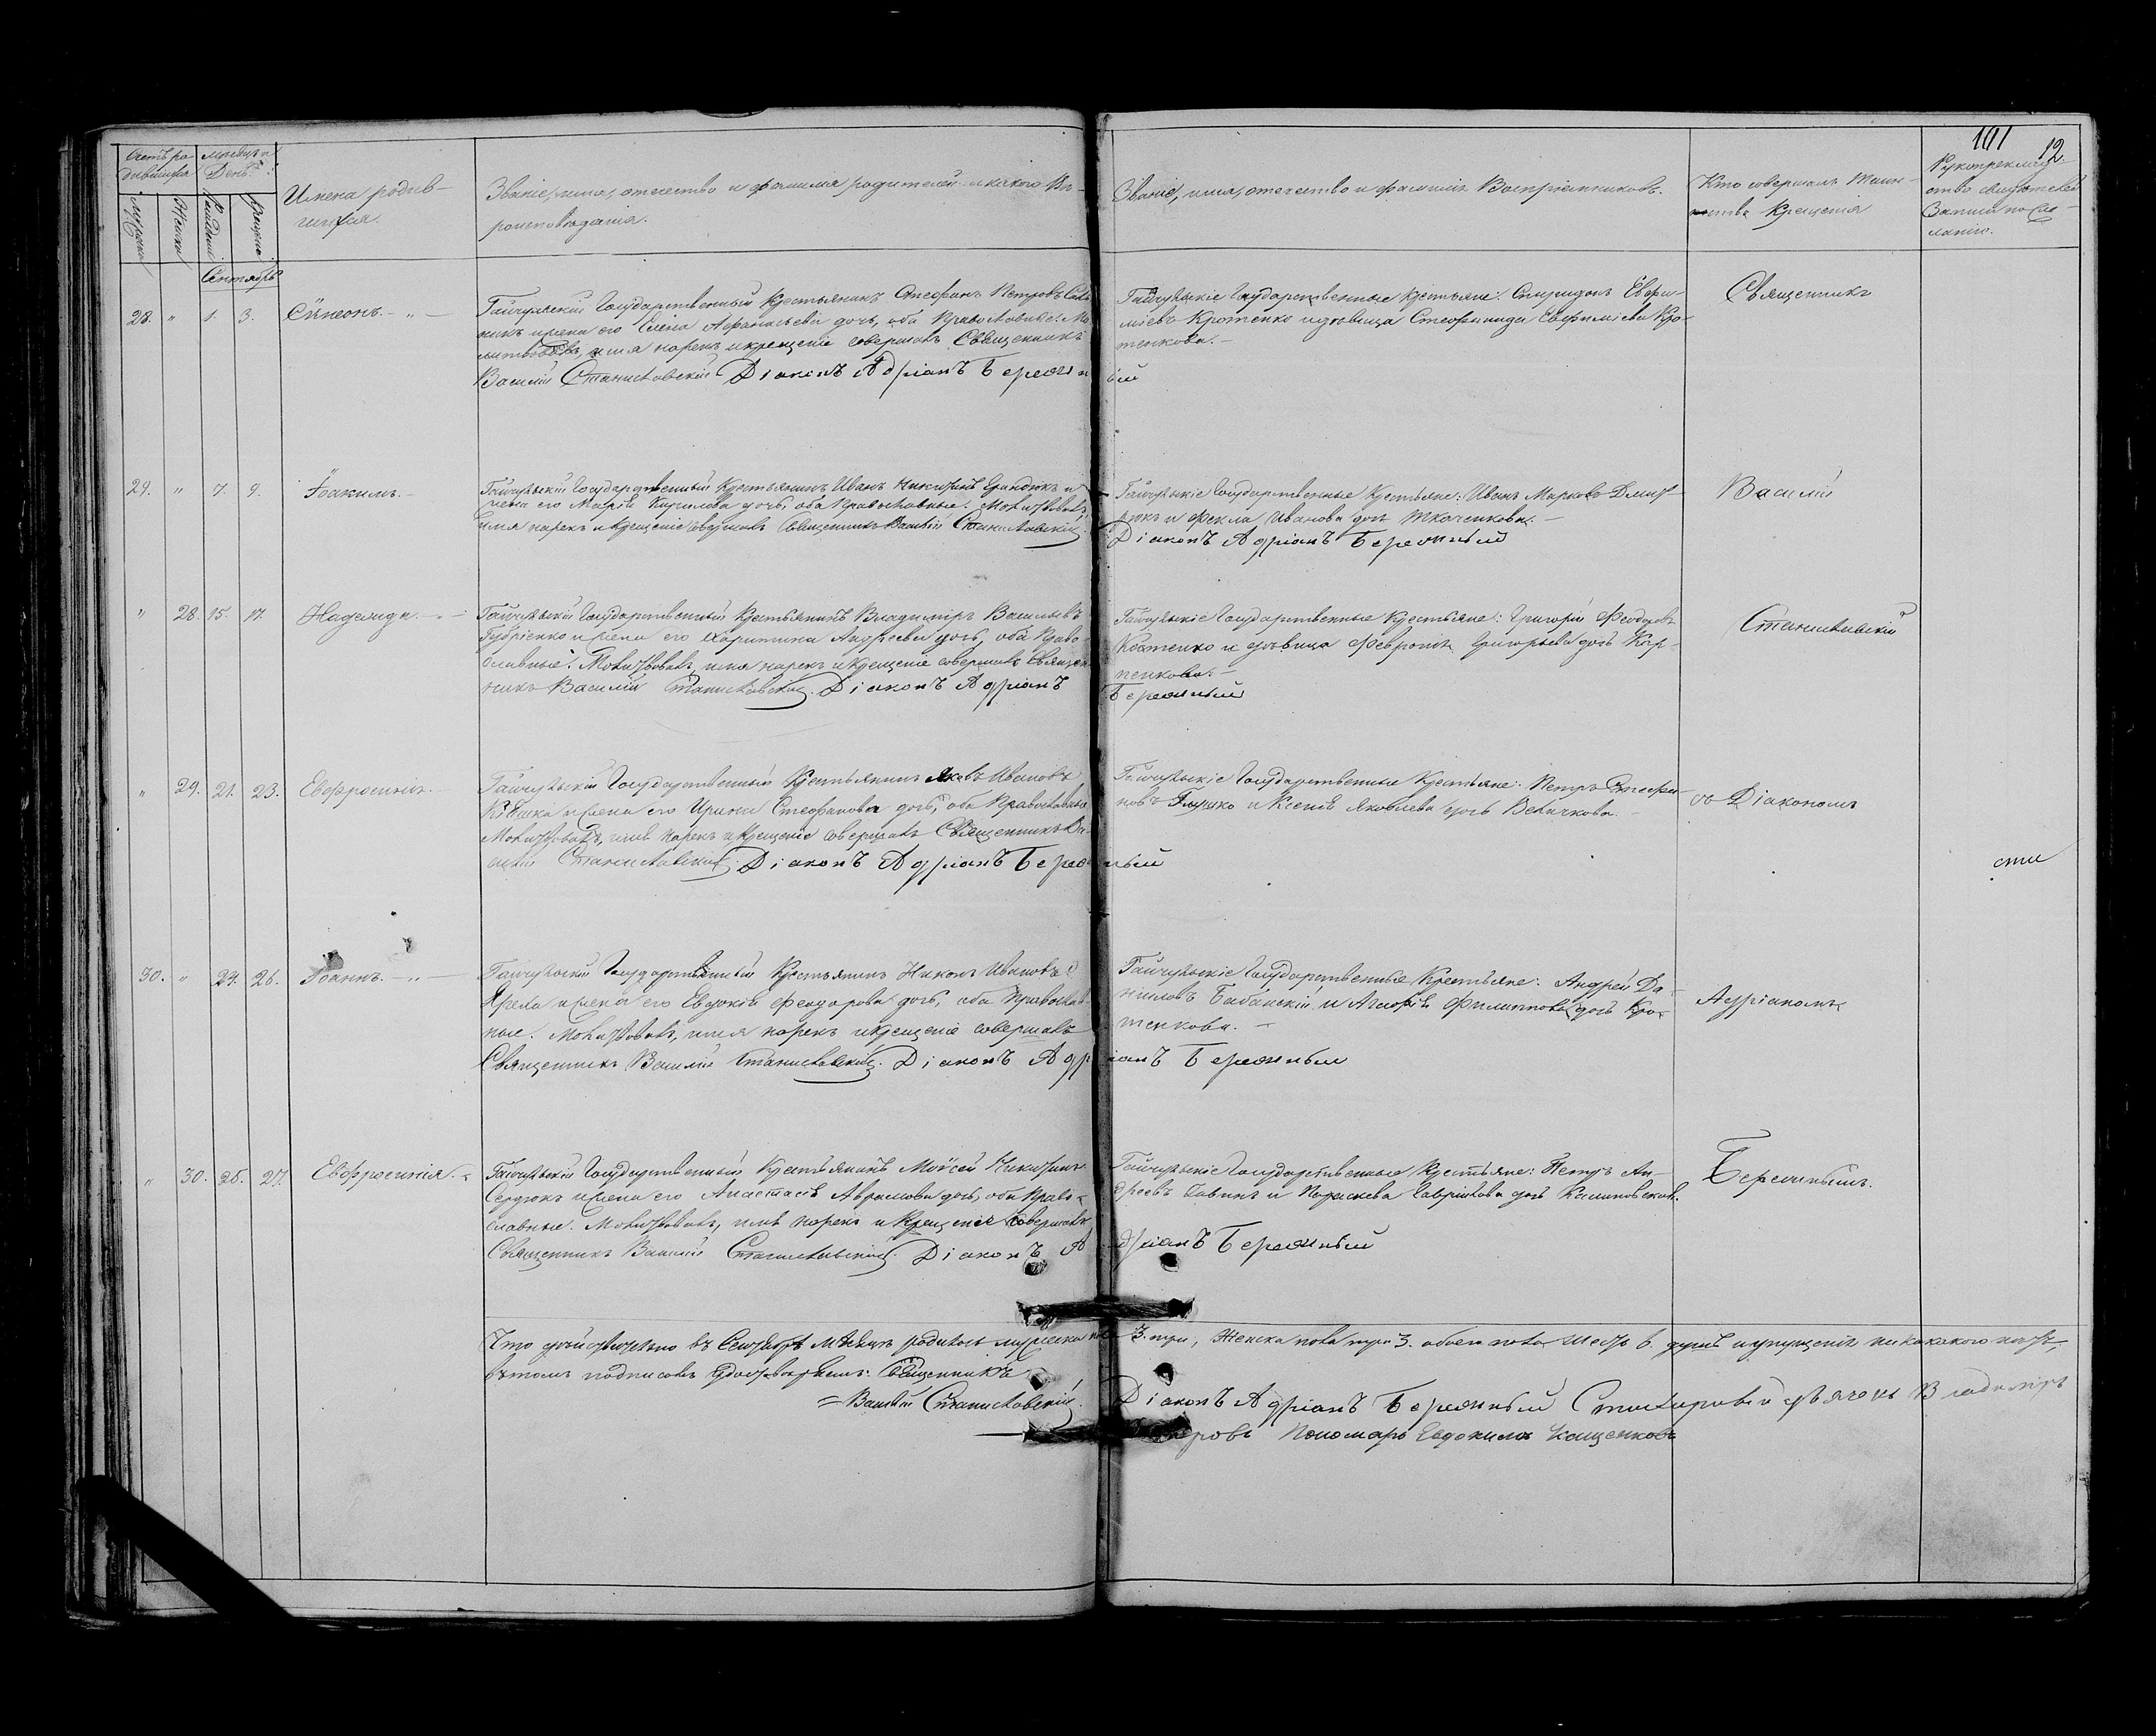 101
12.
Счетъ ро-
дившихся
Мѣсяцъ и
День
Имена родив-
шихся.
Званіе, имя, отчество и фамилія родителей и какого Вѣ-
роисповѣданія.
Званіе, имя, отчество и фамилія Воспріемниковъ.
Кто совершалъ Таин-
ство Крещенія
Рукоприклад-
ство свидѣтелей
Записи по же-
ланію.
Мужеска
Женска
Рожденія
Крещенія
Сентябрь
28. " 1. 3.
Сѵмеонъ. - " -
Гайчульскій Государственный Крестьянинъ Стефанъ Петровъ
и жена его Елена Афанасьева дочь, оба Православные. Мо-
имя нарекъ и крещеніе совершалъ Священникъ
Василій Станиславскій Діаконъ Адріанъ Бережный
Гайчульскіе Государственные Крестьяне: Спиридонъ Евфи-
міевъ Кротенко и дѣвица Стефанида Евфиміева Кро-
тенкова. -
Священникъ
29. " 7. 9.
Іоакимъ. -
Гайчульскій Государственный Крестьянинъ Иванъ и
жена его Марія Кирилова дочь, оба Православные. Молитвовалъ,
имя нарекъ и крещеніе совершалъ Священникъ Василій Станиславскій
Гайчульскіе Государственные Крестьяне: Иванъ Марковъ Дмит-
рюкъ и Фекла Иванова дочь Ткаченкова. -
Діаконъ Адріанъ Бережный
Василій
" 28. 15. 17.
Надежда. - " -
Гайчульскій Государственный Крестьянинъ Владиміръ Васильевъ
и жена его Харитина Андреева дочь, оба Право-
славные. Молитвовалъ, имя нарекъ и крещеніе совершалъ Священ-
никъ Василій Станиславскій. Діаконъ Адріанъ
Гайчульскіе Государственные Крестьяне: Григорій Феодоровъ
Костенко и дѣвица Февронія Григорьева дочь Кар-
пенкова. -
Бережный
Станиславскій
" 29. 21. 23.
Евфросинія. -
Гайчульскій Государственный Крестьянинъ Яковъ Ивановъ
и жена его Ирина Стефанова дочь, оба Православные
Молитвовалъ, имя нарекъ и Крещеніе совершалъ Священникъ Ва-
силій Станиславскій. Діаконъ Адріанъ Бережный
Гайчульскіе Государственные Крестьяне: Петръ Стефа-
новъ Глушко и Ксенія Яковлева дочь Величкова. -
съ Діакономъ
сти
30. " 24. 26.
Іоаннъ. - " -
Гайчульскій Государственный Крестьянинъ Никонъ Ивановъ
и жена его Евдокія Феодорова дочь, оба Православ-
ные. Молитвовалъ, имя нарекъ и крещеніе совершалъ
Священникъ Василій Станиславскій. Діаконъ Адріанъ Бережный
Гайчульскіе Государственные Крестьяне: Андрей Да-
ниловъ Бабанскій и Агафія Филиппова дочь Кро-
тенкова. -
Адріаномъ
" 30. 25. 27.
Евфросинія. -
Гайчульскій Государственный Крестьянинъ Моѵсей Никитинъ
Сердюкъ и жена его Анастасія Аврамова дочь, оба Право-
славные. Молитвовалъ, имя нарекъ и Крещеніе совершалъ
Священникъ Василій Станиславскій. Діаконъ Адріанъ Бережный
Гайчульскіе Государственные Крестьяне: Петръ Ан-
дреевъ Савинъ и Параскева Гавріилова дочь
Бережнымъ.
Что дѣйствительно въ Сентябрѣ мѣсяцѣ родилось мужеска пола 3. три, Женска пола три 3. обоего пола шесть 6. душъ и упущенія никакого нѣтъ,
въ томъ подписомъ удостовѣряемъ: Священникъ
Василій Станиславскій. Діаконъ Адріанъ Бережный дьячокъ Владиміръ
Пономарь Евдокимъ